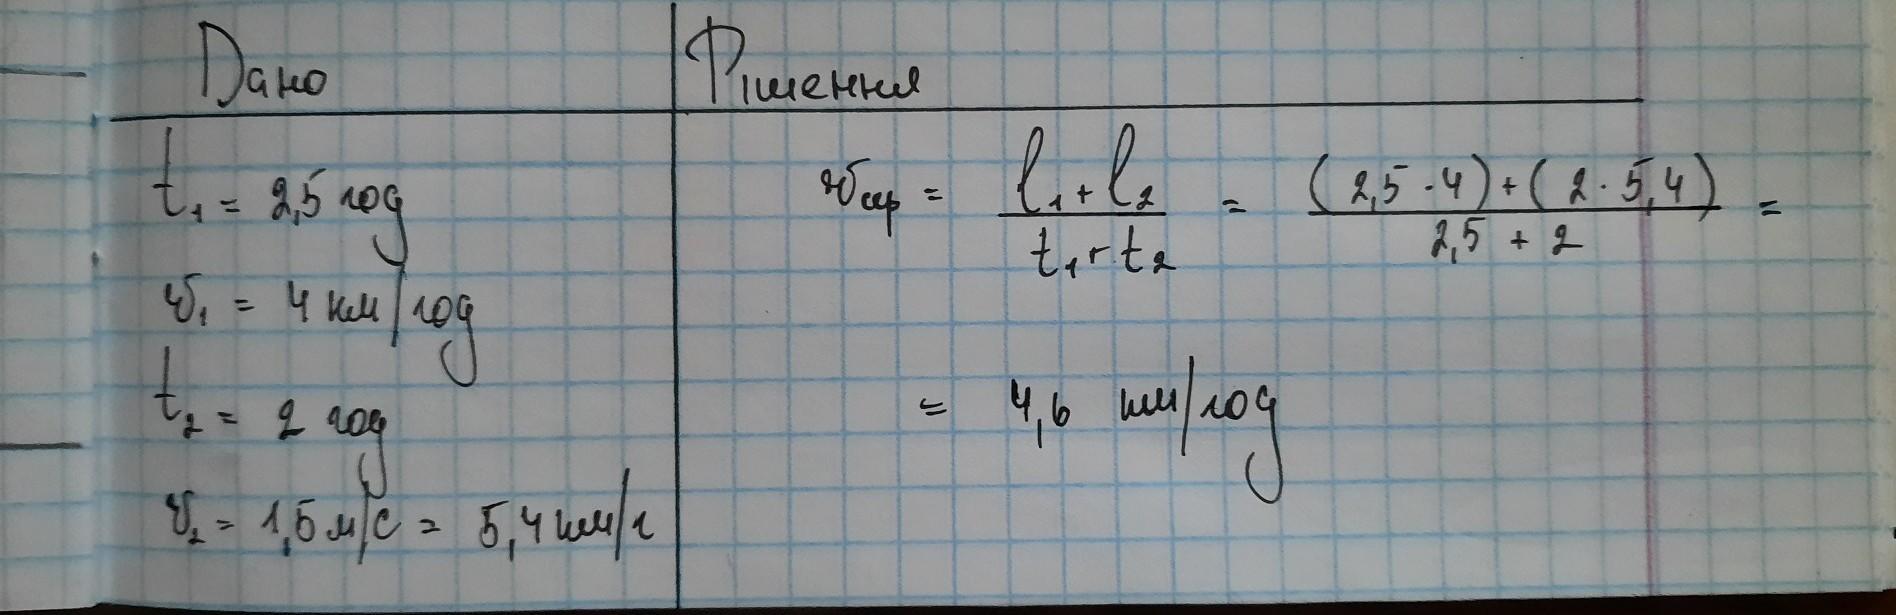 Дано Рішення
t₁ = 2,5 год
v₁ = 4 км/год
t₂ = 2 год
v₂ = 1,5 м/с = 5,4 км/г
vср = (l₁ + l₂)/(t₁ + t₂) = ((2,5 · 4) + (2 · 5,4))/(2,5 + 2) =
= 4,6 км/год